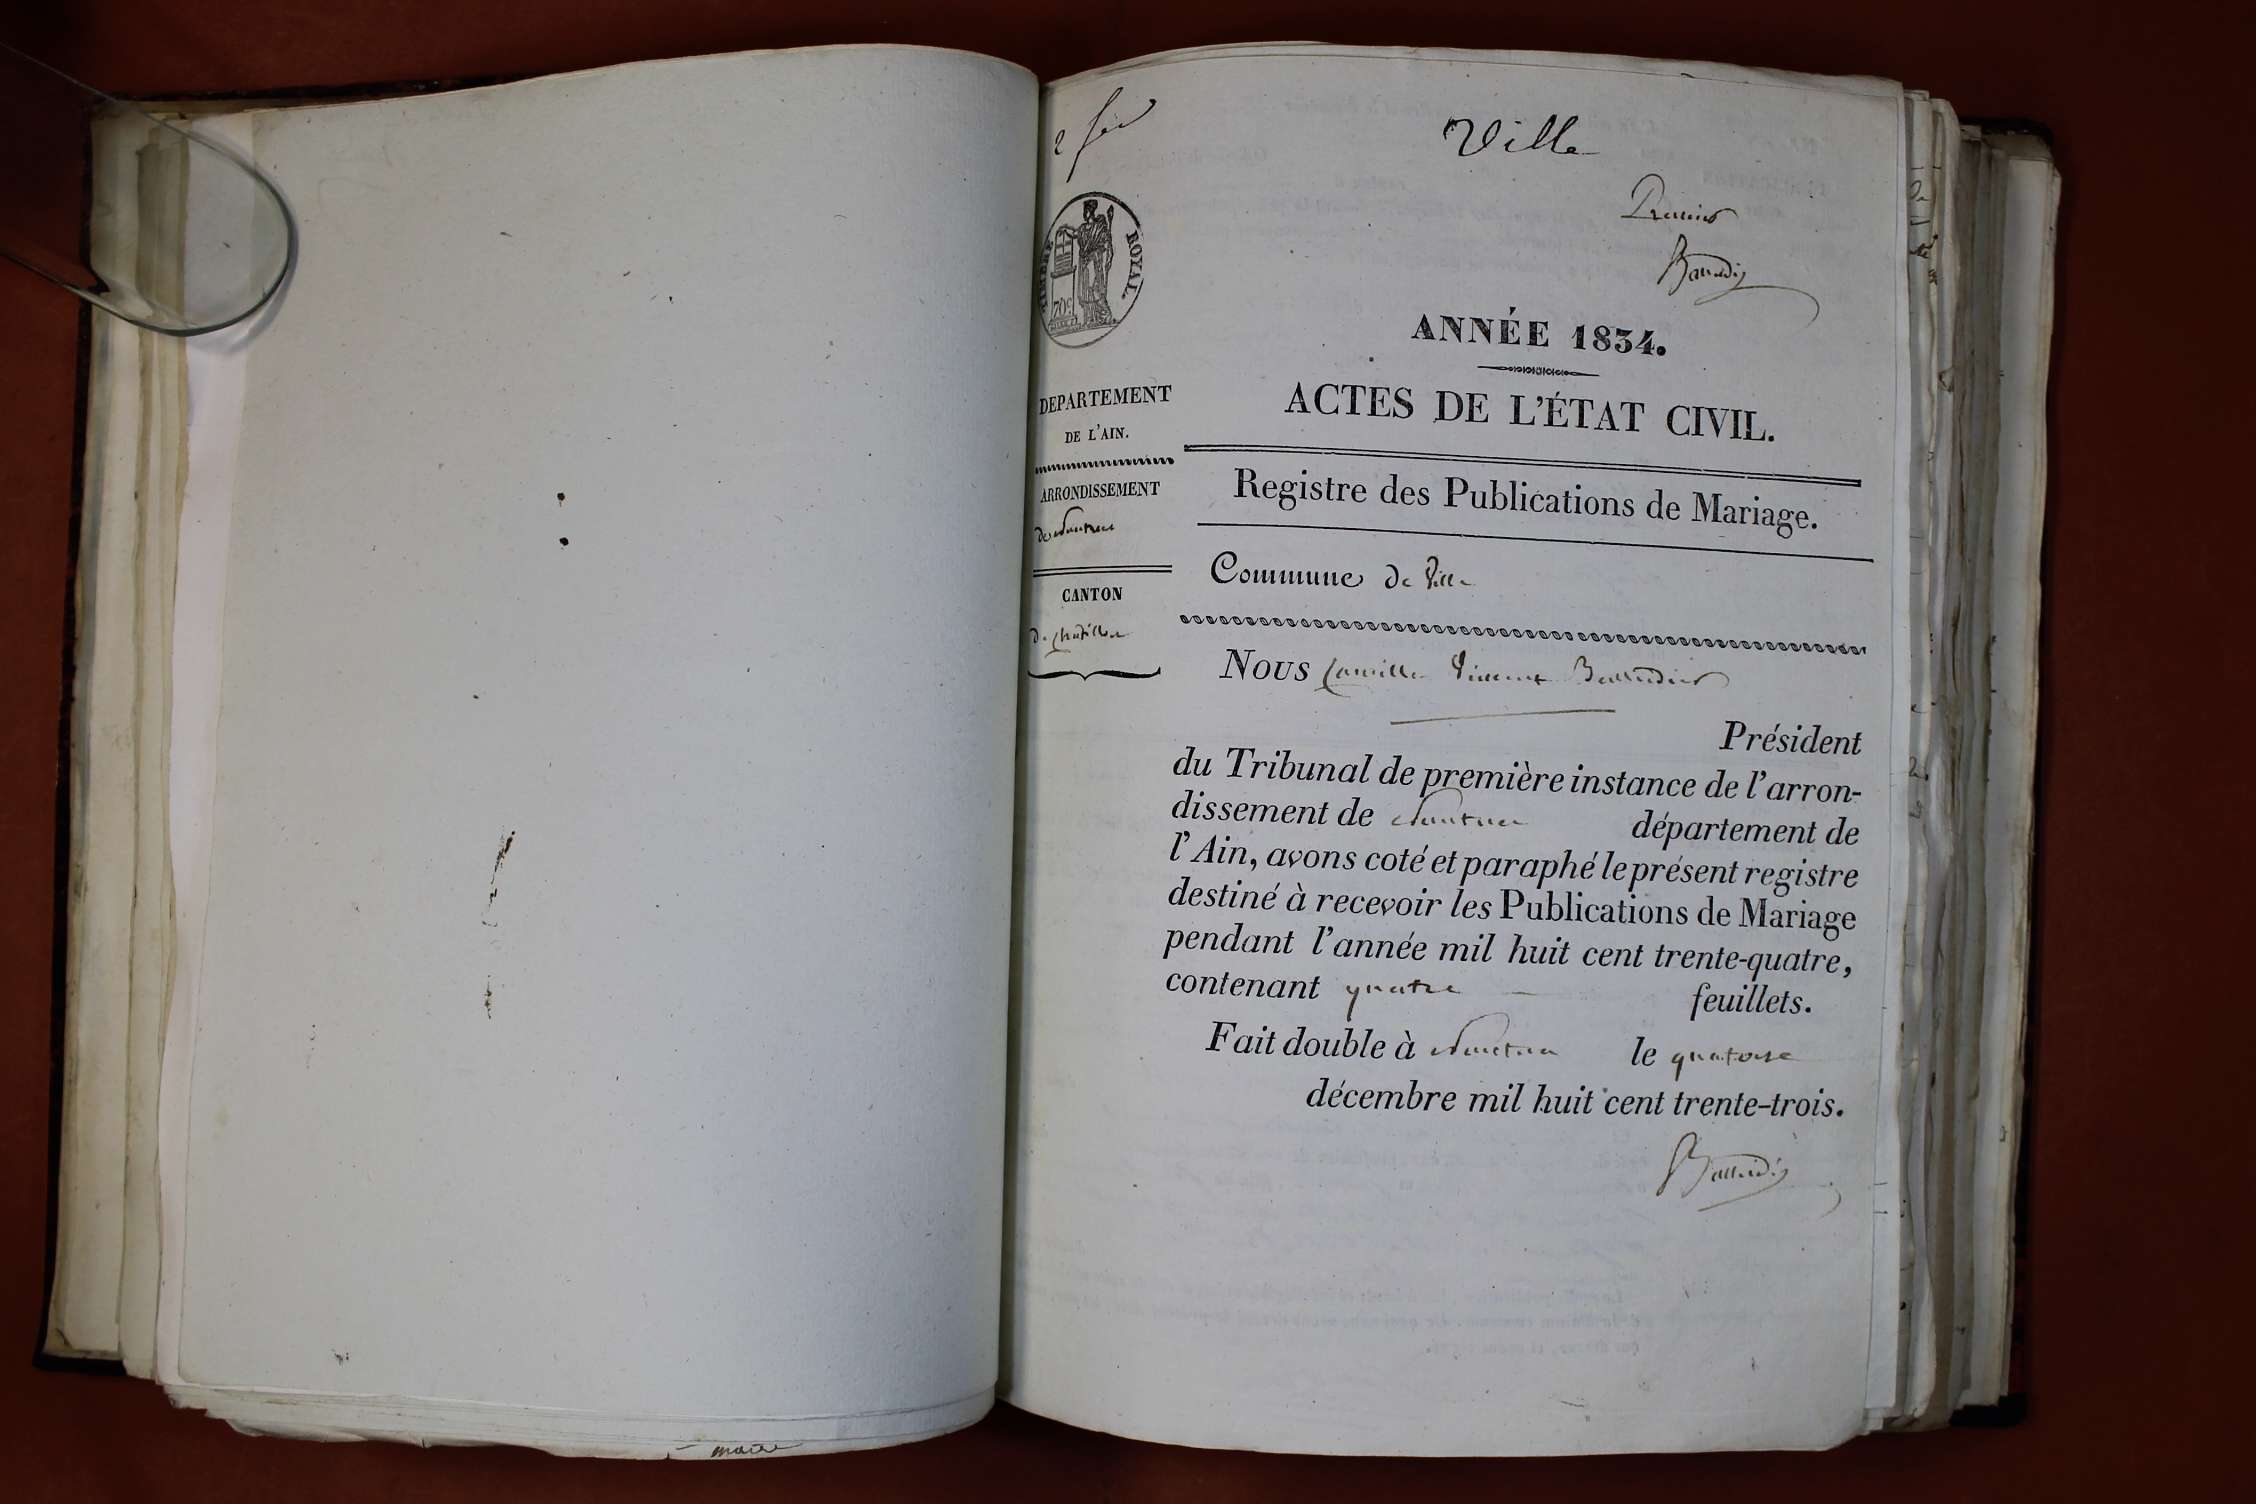 2 feu
Ville
Premier
TIMBRE ROYAL.
70c
ANNÉE 1834.
ACTES DE L'ÉTAT CIVIL.
DEPARTEMENT
DE L'AIN.
ARRONDISSEMENT
de Nantua
CANTON
de Chatillon
Registre des Publications de Mariage.
Commune de Ville
Nous Camille Vincent Balludier
Président
du Tribunal de première instance de l'arron-
dissement de Nantua département de
l'Ain, avons coté et paraphé le présent registre
destiné à recevoir les Publications de Mariage
pendant l'année mil huit cent trente-quatre,
contenant quatre feuillets.
Fait double à Nantua le quatorze
décembre mil huit cent trente-trois.
maire